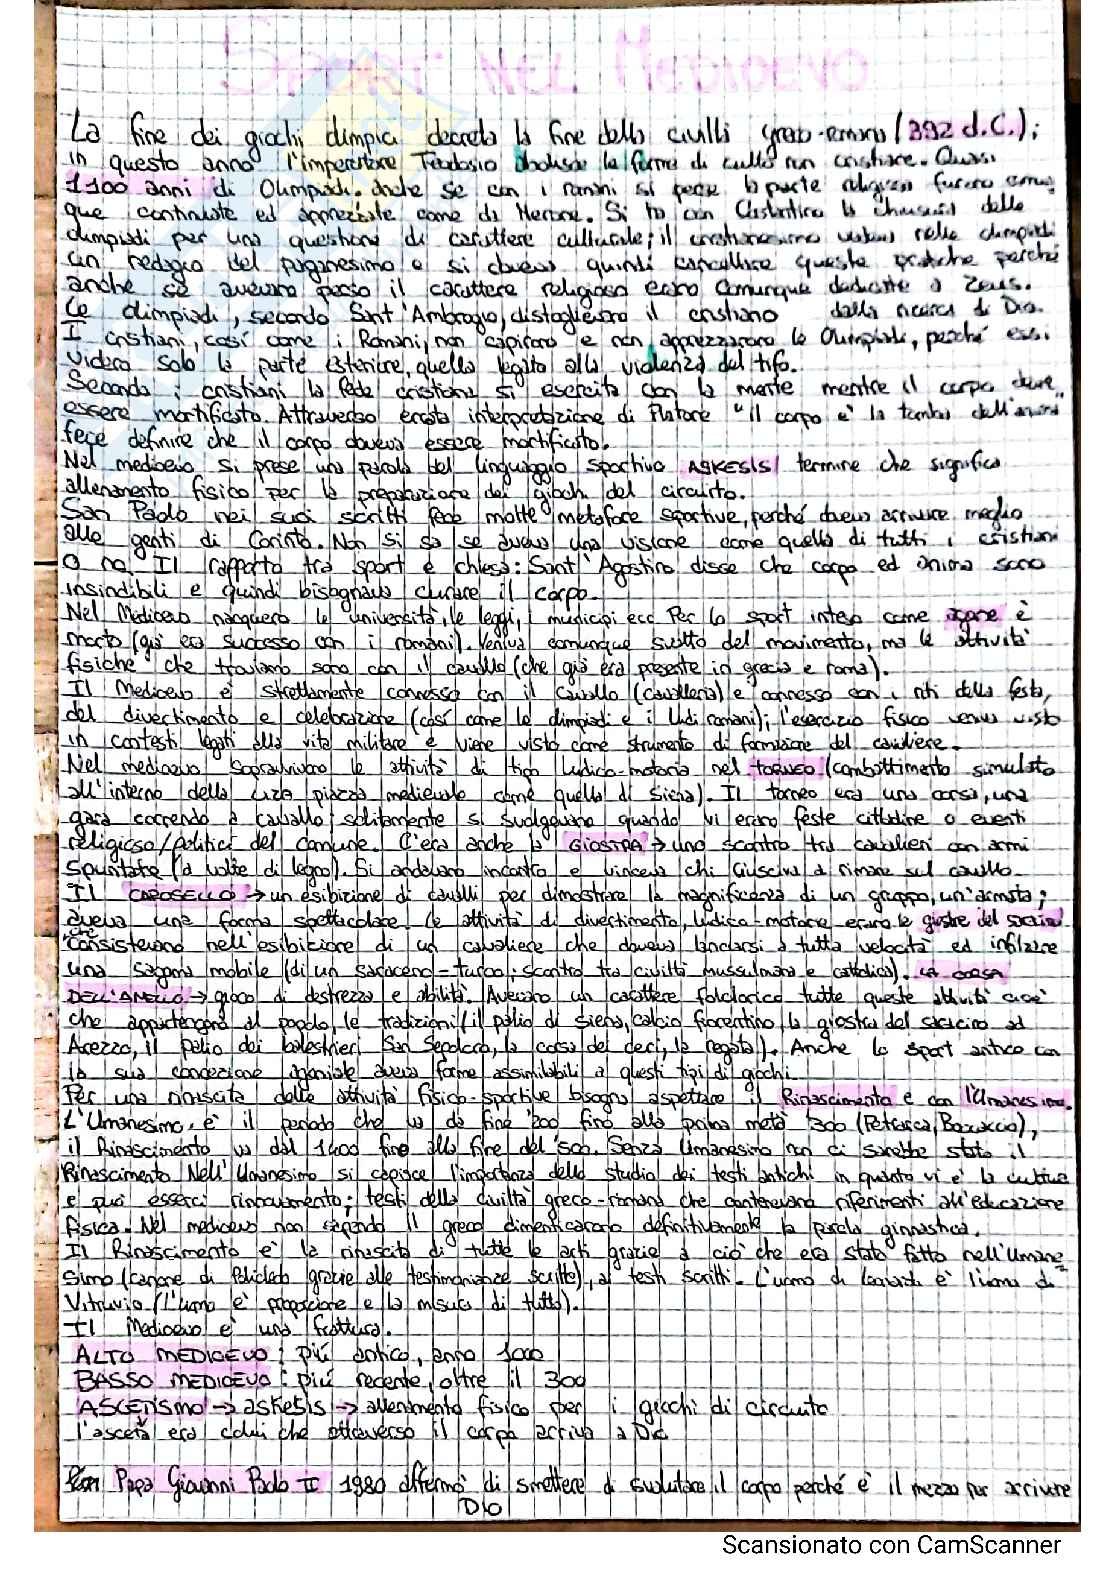 SPORT NEL MEDIOEVO
La fine dei giochi olimpici decreta la fine della civiltà greco-romana (392 d.C.);
in questo anno l'imperatore Teodosio abolisce le forme di culto non cristiane. Quasi
1100 anni di Olimpiadi. Anche se con i romani si perse la parte religiosa furono comun
que continuate ed apprezzate come da Nerone. Si ha con Costantino la chiusura delle
olimpiadi per una questione di carattere culturale; il cristianesimo vedeva nelle olimpiadi
un retaggio del paganesimo e si doveva quindi cancellare queste pratiche perché
anche se avevano perso il carattere religioso erano comunque dedicate a Zeus.
Le olimpiadi, secondo Sant'Ambrogio, distoglievano il cristiano dalla ricerca di Dio.
I cristiani, così come i Romani, non capirono e non apprezzarono le Olimpiadi, perché essi
videro solo la parte esteriore, quella legata alla violenza del tifo.
Secondo i cristiani la fede cristiana si esercita con la mente mentre il corpo deve
essere mortificato. Attraverso errata interpretazione di Platone "il corpo è la tomba dell'anima"
fece definire che il corpo doveva essere mortificato.
Nel medioevo si prese una parola del linguaggio sportivo ASKESIS/ termine che significa
allenamento fisico per la preparazione dei giochi del circuito.
San Paolo nei suoi scritti fece molte metafore sportive, perché doveva arrivare meglio
alle genti di Corinto. Non si sa se aveva una visione come quella di tutti i cristiani
o no. Il rapporto tra sport e chiesa: Sant'Agostino disse che corpo ed anima sono
inscindibili e quindi bisognava curare il corpo.
Nel Medioevo nacquero le università, le leggi, i municipi ecc. Per lo sport inteso come agone è
morto (già era successo con i romani). Veniva comunque svolto del movimento, ma le attività
fisiche che troviamo sono con il cavallo (che già era presente in grecia e roma).
Il Medioevo è strettamente connesso con il cavallo (cavalleria) e connesso con i riti della festa,
del divertimento e celebrazione (così come le olimpiadi e i ludi romani); l'esercizio fisico veniva visto
in contesti legati alla vita militare e viene visto come strumento di formazione del cavaliere.
Nel medioevo sopravvivono le attività di tipo ludico-motoria nel TORNEO (combattimento simulato
all'interno della Liza piazza medievale come quella di Siena). Il torneo era una corsa, una
gara correndo a cavallo; solitamente si svolgevano quando vi erano feste cittadine o eventi
religioso/politici del comune. C'era anche la GIOSTRA → uno scontro tra cavalieri con armi
spuntate (a volte di legno). Si andavano incontro e vinceva chi riusciva a rimane sul cavallo.
Il CAROSELLO → un esibizione di cavalli per dimostrare la magnificenza di un gruppo, un'armata;
aveva una forma spettacolare. Le attività di divertimento, ludico-motorie erano le giostre del saracino
che consistevano nell'esibizione di un cavaliere che doveva lanciarsi a tutta velocità ed infilzare
una sagoma mobile (di un saraceno-turco: scontro tra civiltà mussulmana e cattolica). LA CORSA
DELL'ANELLO → gioco di destrezza e abilità. Avevano un carattere folcloristico tutte queste attività cioè
che appartengono al popolo, le tradizioni (il palio di siena, calcio fiorentino, la giostra del saracino ad
Arezzo, il palio dei balestrieri San Sepolcro, la corsa dei ceri, la regata). Anche lo sport antico con
la sua concezione agonale aveva forme assimilabili a questi tipi di giochi.
Per una rinascita delle attività fisico-sportive bisogna aspettare il Rinascimento e con l'Umanesimo.
L'Umanesimo è il periodo che va da fine '200 fino alla prima metà '300 (Petrarca, Boccaccio),
il Rinascimento va dal 1400 fino alla fine del '500. Senza Umanesimo non ci sarebbe stato il
Rinascimento. Nell'Umanesimo si capisce l'importanza dello studio dei testi antichi in quanto vi è la cultura
e può esserci rinnovamento; testi della civiltà greco-romana che contenevano riferimenti all'educazione
fisica. Nel medioevo non sapendo il greco dimenticarono definitivamente la parola ginnastica.
Il Rinascimento è la rinascita di tutte le arti grazie a ciò che era stato fatto nell'Umane
simo (canone di Policleto grazie alle testimonianze scritte), ai testi scritti. L'uomo di Leonardo è l'uomo di
Vitruvio (l'uomo è proporzione e la misura di tutto).
Il Medioevo è una frattura.
ALTO MEDIOEVO: più antico, anno 1000
BASSO MEDIOEVO: più recente, oltre il 300
ASCETISMO → askesis → allenamento fisico per i giochi di circuito
l'asceta era colui che attraverso il corpo arriva a Dio
Papa Giovanni Paolo II 1980 affermò di smettere di svalutare il corpo perché è il mezzo per arrivare
Dio
Scansionato con CamScanner